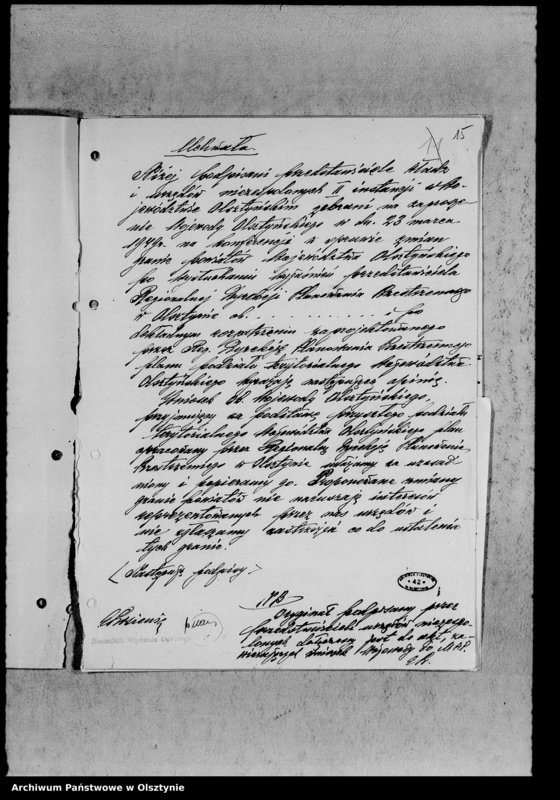 15
Uchwała
Niżej podpisani przedstawiciele władz
i urzędów niezespolonych II instancji w Wo-
jewództwie Olsztyńskim zebrani na zaprosze-
nie Wojewody Olsztyńskiego w dn. 23 marca
194 r. na konferencji w sprawie zmian
granic powiatów Województwa Olsztyńskiego
po wysłuchaniu wyjaśnień przedstawiciela
Regionalnej Dyrekcji Planowania Przestrzennego
w Olsztynie ob. . . . . . . . . . . . . i po
dokładnym rozpatrzeniu zaprojektowanego
przez Reg. Dyrekcję Planowania Przestrzennego
planu podziału terytorialnego Województwa
Olsztyńskiego wyrażają następującą opinię.
Wniosek Ob. Wojewody Olsztyńskiego,
przyjmujący za podstawę przyszłego podziału
terytorialnego Województwa Olsztyńskiego plan
opracowany przez Regionalną Dyrekcję Planowania
Przestrzennego w Olsztynie uważamy za uzasad-
niony i popieramy go. Proponowane zmiany
granic powiatów nie naruszają interesów
reprezentowanych przez nas urzędów i
nie zgłaszamy zastrzeżeń co do ustalenia
tych granic.
(Następują podpisy)
42
NB
Oryginał podpisany przez
przedstawicieli urzędów niezespo-
lonych dołączony jest do akt, za-
wierających wniosek Wojewody do M.A.P.
Naczelnik Wydziału
Archiwum Państwowe w Olsztynie